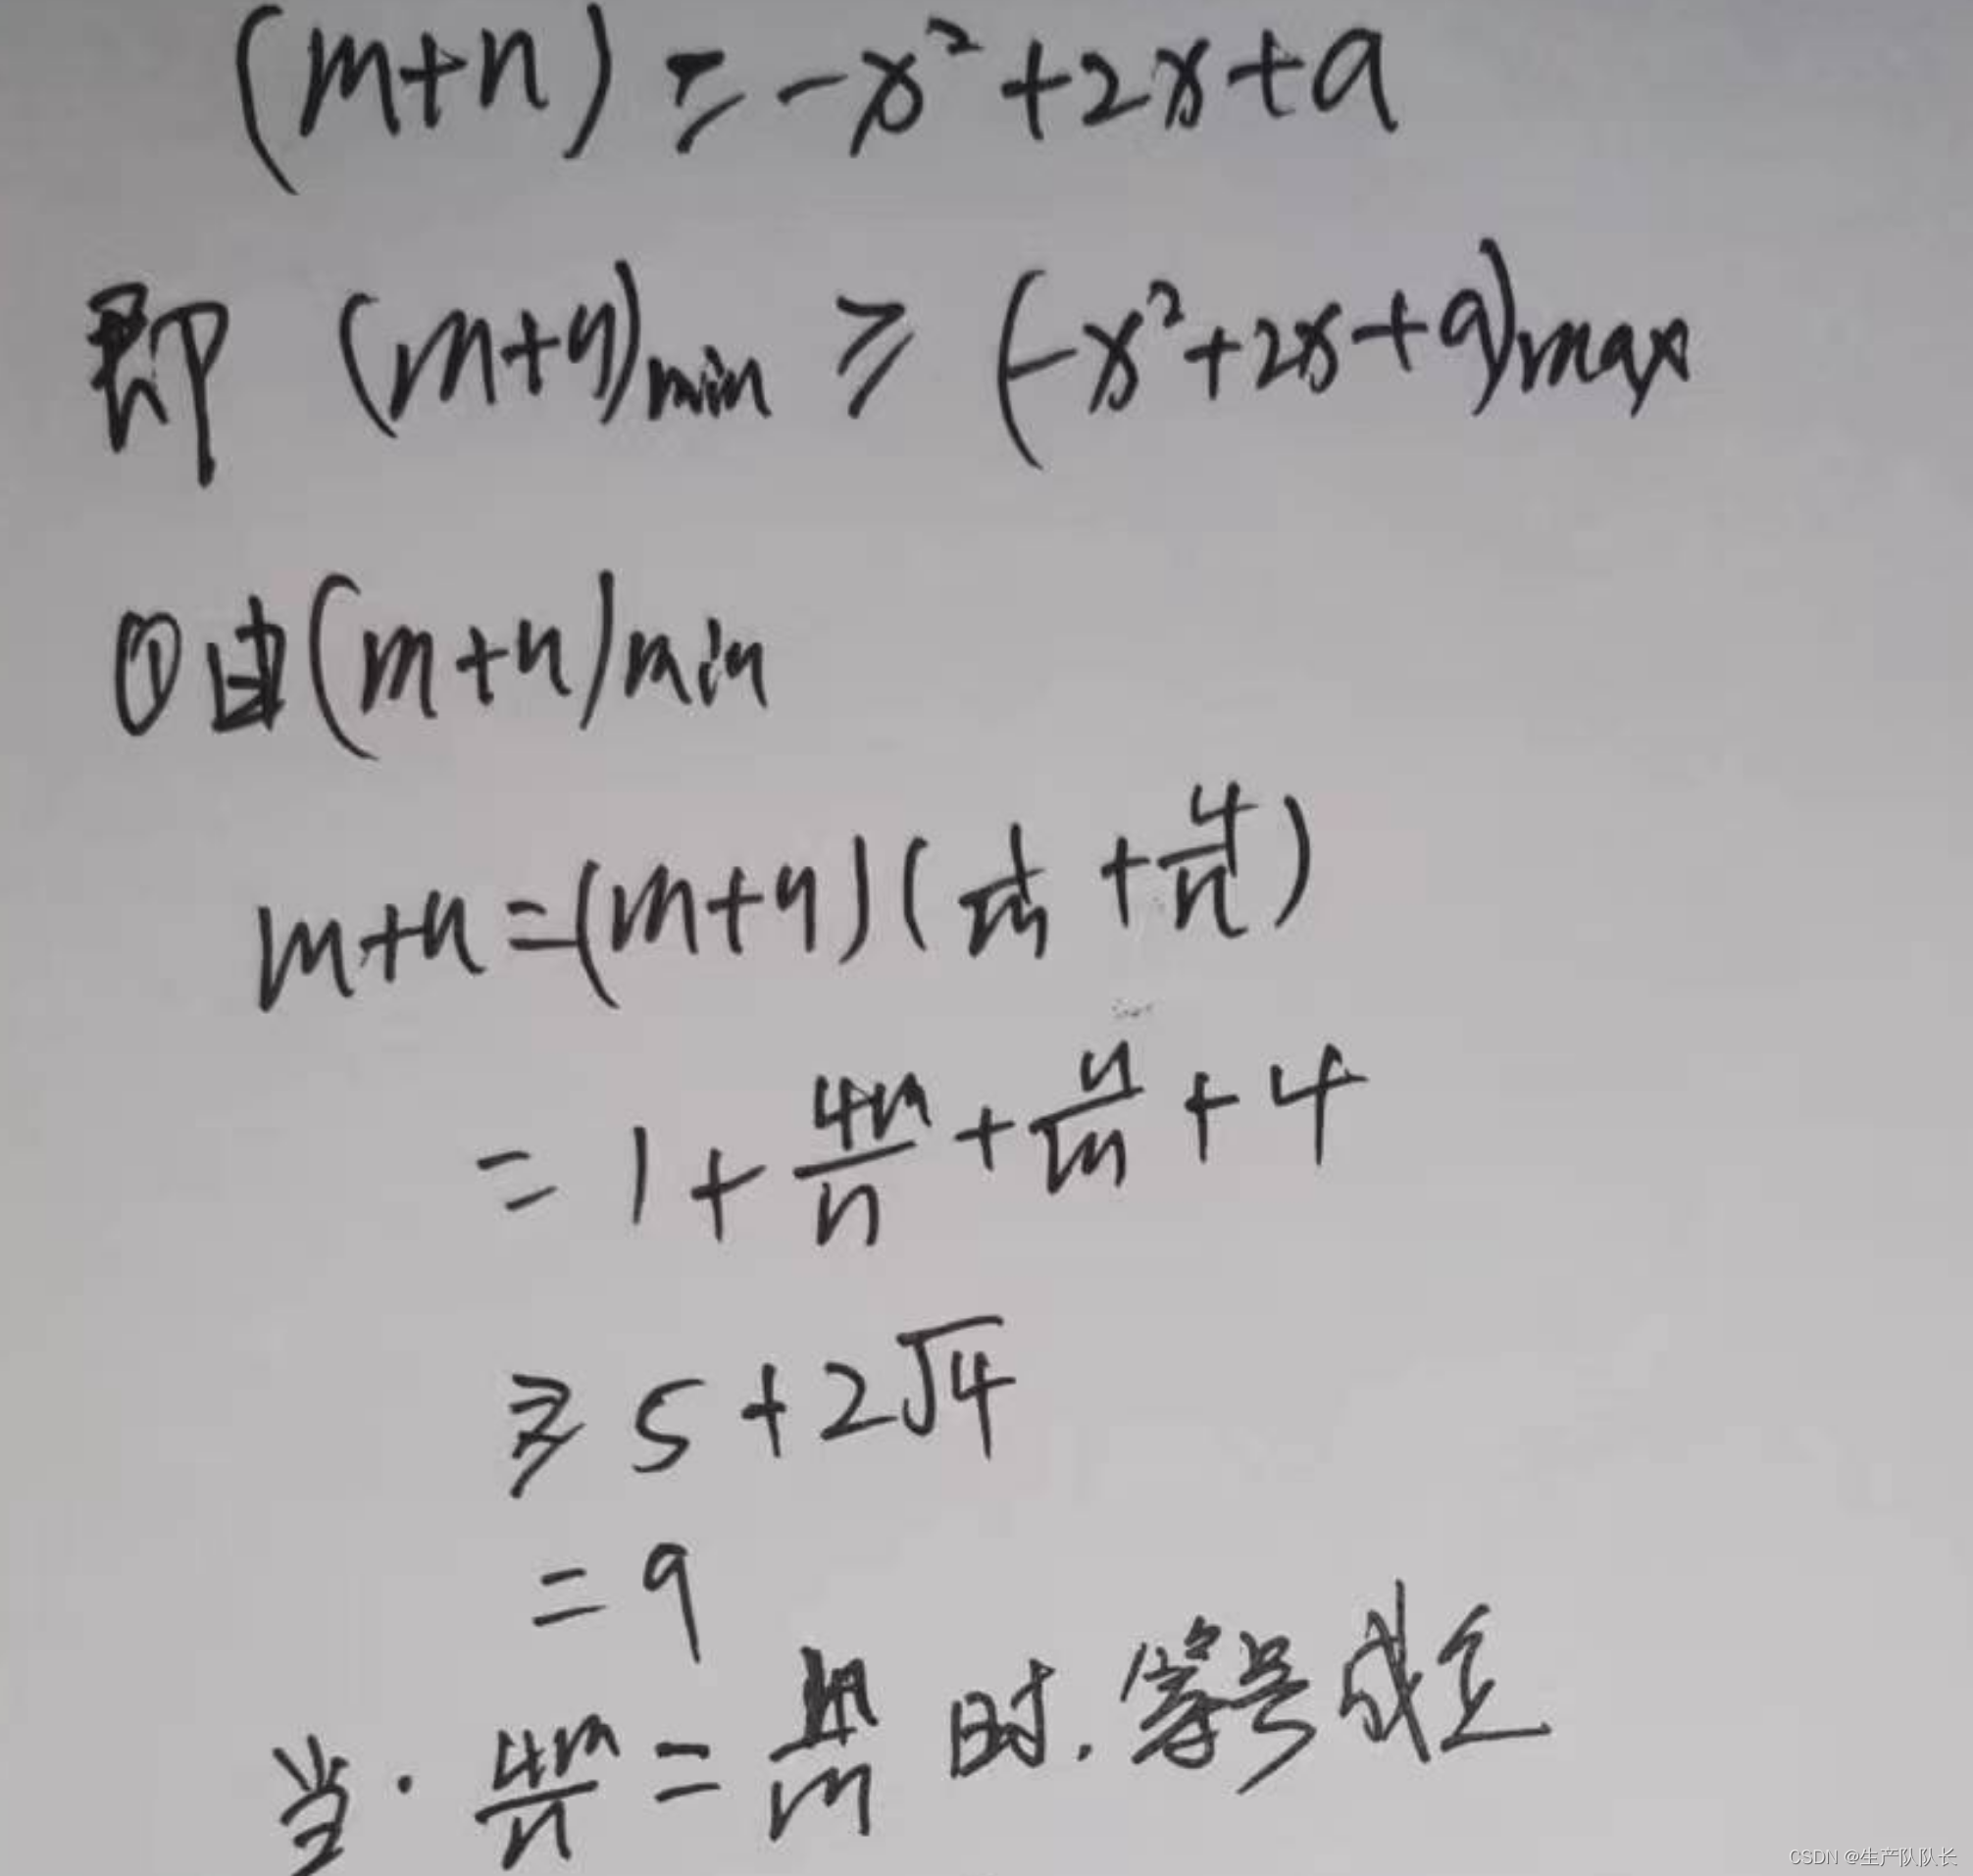 (m+n) ≥ -x²+2x+a
即 (m+n)min ≥ (-x²+2x+a)max
①由(m+n)min
m+n=(m+n)(1/m+4/n)
= 1+4m/n+n/m+4
≥ 5+2√4
= 9
当. 4m/n = n/m 时. 等号成立
CSDN @生产队队长